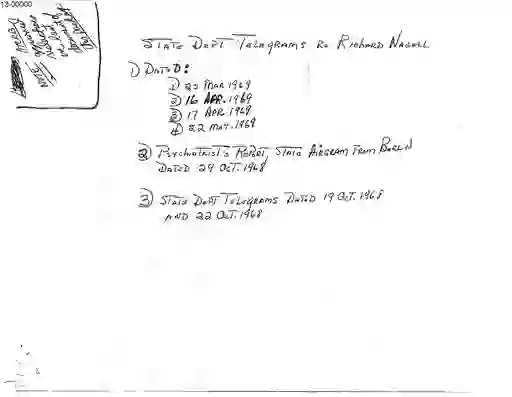 13-00000
NOTE:
STATE DEPT TELEGRAMS RE RICHARD NAGELL
1) DATED:
1) 25 MAR 1969
2) 16 APR. 1969
3) 17 APR 1969
4) 22 MAY. 1969
2) PSYCHIATRIST'S REPORT, STATE AIRGRAM FROM BERLIN
DATED 29 OCT. 1968
3) STATE DEPT TELEGRAMS DATED 19 OCT. 1968
AND 22 OCT. 1968